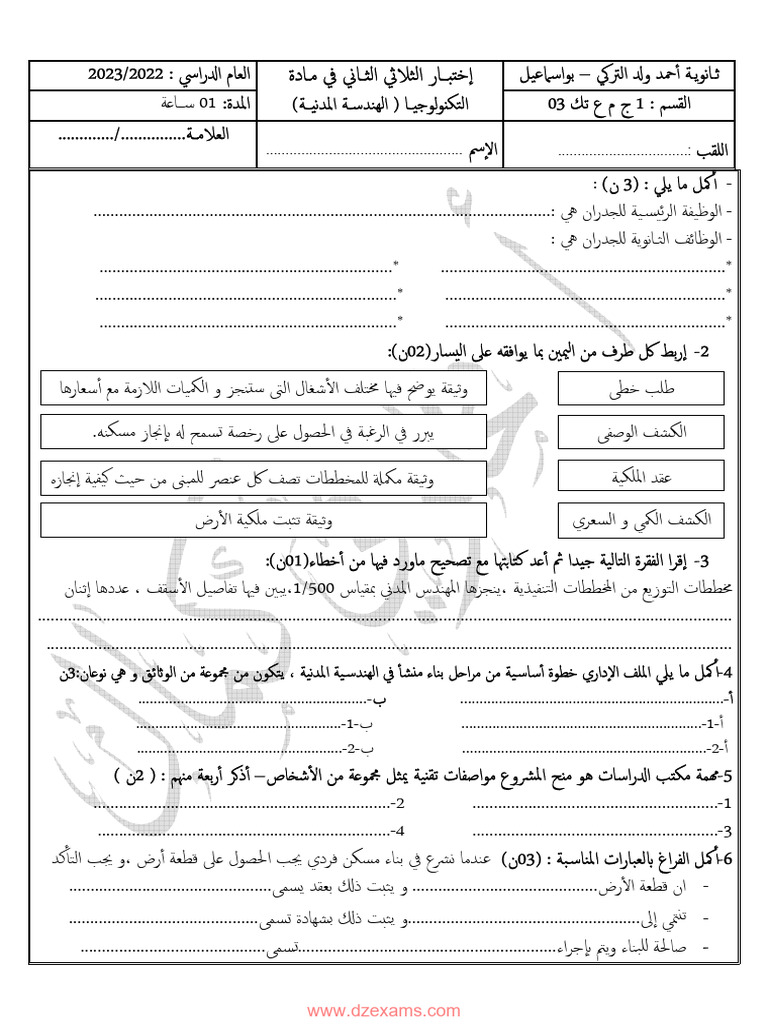 ثانوية أحمد ولد التركي – بواسماعيل
إختبار الثلاثي الثاني في مادة
العام الدراسي : 2023/2022
القسم : 1 ج م ع تك 03
التكنولوجيا ( الهندسة المدنية)
المدة: 01 ساعة
اللقب :..................................
الإسم ..................................................
العلامة................/.............
- أكمل ما يلي : (3 ن) :
- الوظيفة الرئيسية للجدران هي :............................................................................................................
- الوظائف الثانوية للجدران هي :
*.................................................................. *....................................................................
*.................................................................. *......................................................................
*.................................................................. *.....................................................................
2- إربط كل طرف من اليمين بما يوافقه على اليسار(02ن):
طلب خطى
وثيقة يوضح فيها مختلف الأشغال التى ستنجز و الكميات اللازمة مع أسعارها
الكشف الوصفى
يبرر في الرغبة في الحصول على رخصة تسمح له بإنجاز مسكنه.
عقد الملكية
وثيقة مكملة للمخططات تصف كل عنصر للمبنى من حيث كيفية إنجازه
الكشف الكمي و السعري
وثيقة تثبت ملكية الأرض
3- إقرا الفقرة التالية جيدا ثم أعد كتابتها مع تصحيح ماورد فيها من أخطاء(01ن):
مخططات التوزيع من المخططات التنفيذية ،ينجزها المهندس المدني بمقياس 1/500،يبين فيها تفاصيل الأسقف ، عددها إثنان
..................................................................................................................................................................
................................................................................................................................................................
4-أكمل ما يلي الملف الإداري خطوة أساسية من مراحل بناء منشأ في الهندسية المدنية ، يتكون من مجموعة من الوثائق و هي نوعان:3ن
أ-.............................................................. ب-......................................................
أ-1-......................................................... ب-1-................................................
أ-2-......................................................... ب-2-................................................
5-مهمة مكتب الدراسات هو منح المشروع مواصفات تقنية يمثل مجموعة من الأشخاص– أذكر أربعة منهم : ( 2ن )
1-......................................................... 2-.....................................................................
3-......................................................... 4-....................................................................
6-أكمل الفراغ بالعبارات المناسبة : (03ن) عندما نشرع في بناء مسكن فردي يجب الحصول على قطعة أرض ،و يجب التأكد
- ان قطعة الأرض........................................... و يثبت ذلك بعقد يسمى...............................................
- تنتمي إلى.....................................................و يثبت ذلك بشهادة تسمى............................................
- صالحة للبناء ويتم بإجراء............................................................تسمى...........................................
www.dzexams.com